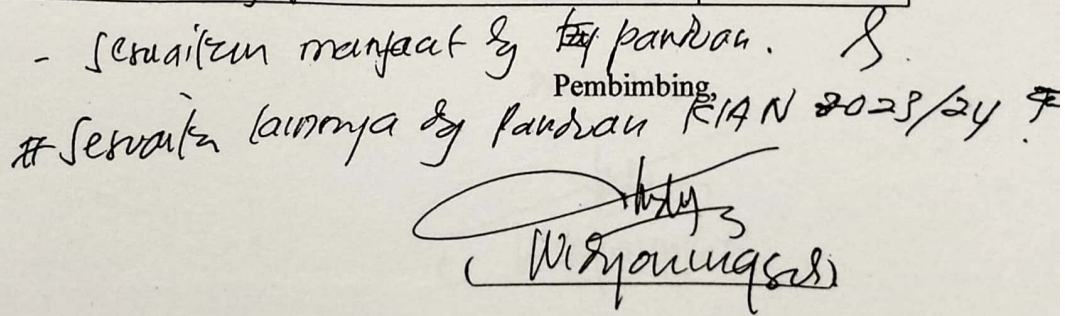 - Sesuaikan manfaat dg panduan.
Pembimbing,
# Sesuaik lainnya dg Panduan KIAN 2023/24
(Widyaningsih)